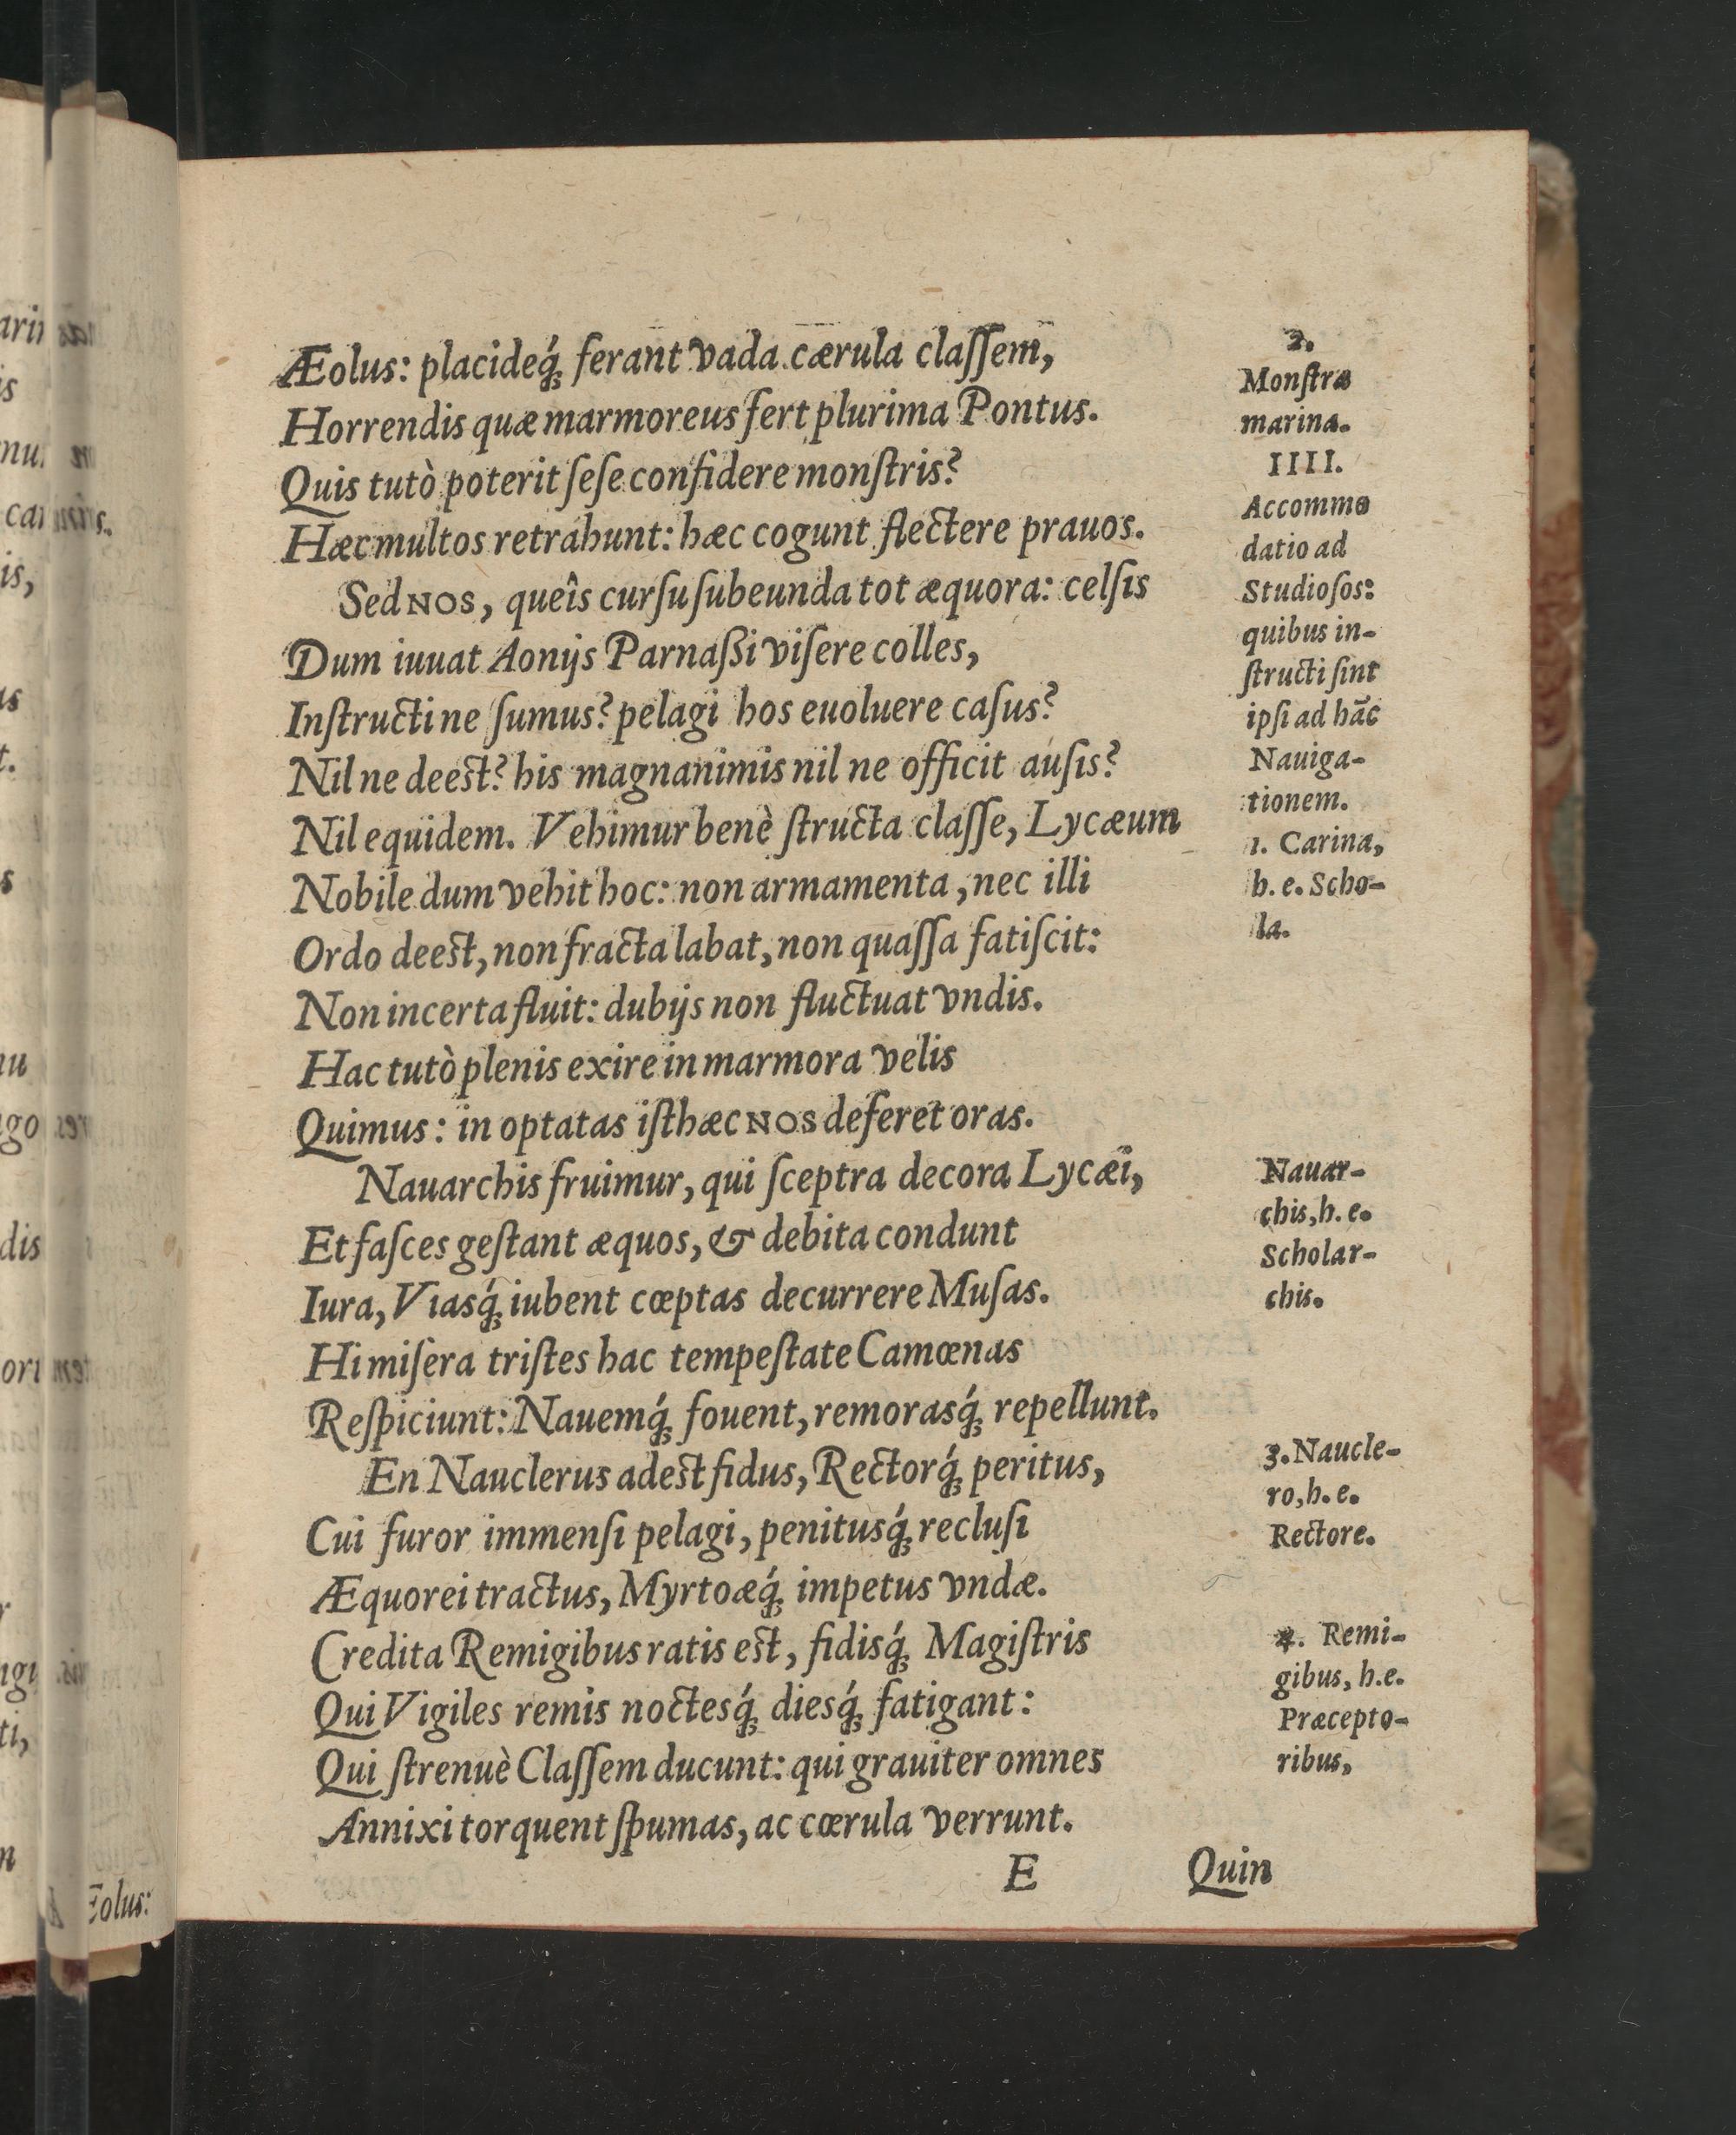 Æolus: placideq́; ferant vada cærula claſſem,
Horrendis quæ marmoreus fert plurima Pontus.
Quis tutò poterit ſeſe confidere monſtris?
Hæc multos retrahunt: hæc cogunt flectere prauos.
Sed NOS, queîs curſu ſubeunda tot æquora: celſis
Dum iuuat Aonijs Parnaßi viſere colles,
Inſtructi ne ſumus? pelagi hos euoluere caſus?
Nil ne deest? his magnanimis nil ne officit auſis?
Nil equidem. Vehimur benè ſtructa claſſe, Lycæum
Nobile dum vehit hoc: non armamenta, nec illi
Ordo deest, non fracta labat, non quaſſa fatiſcit:
Non incerta fluit: dubijs non fluctuat vndis.
Hac tutò plenis exire in marmora velis
Quimus: in optatas iſthæc NOS deferet oras.
Nauarchis fruimur, qui ſceptra decora Lycæi,
Et faſces geſtant æquos, & debita condunt
Iura, Viasq́; iubent cœptas decurrere Muſas.
Hi miſera triſtes hac tempeſtate Camœnas
Reſpiciunt: Nauemq́; fouent, remorasq́; repellunt.
En Nauclerus adest fidus, Rectorq́; peritus,
Cui furor immenſi pelagi, penitusq́; recluſi
Æquorei tractus, Myrtoæq́; impetus vndæ.
Credita Remigibus ratis est, fidisq́; Magiſtris
Qui Vigiles remis noctesq́; diesq́; fatigant:
Qui ſtrenuè Claſſem ducunt: qui grauiter omnes
Annixi torquent ſpumas, ac cœrula verrunt.
E
Quin
2.
Monſtra
marina.
IIII.
Accommo
datio ad
Studioſos:
quibus in-
ſtructi ſint
ipſi ad hãc
Nauiga-
tionem.
1. Carina,
h. e. Scho-
la.
Nauar-
chis, h. e.
Scholar-
chis.
3. Naucle-
ro, h. e.
Rectore.
4. Remi-
gibus, h.e.
Præcepto-
ribus,
Æolus: